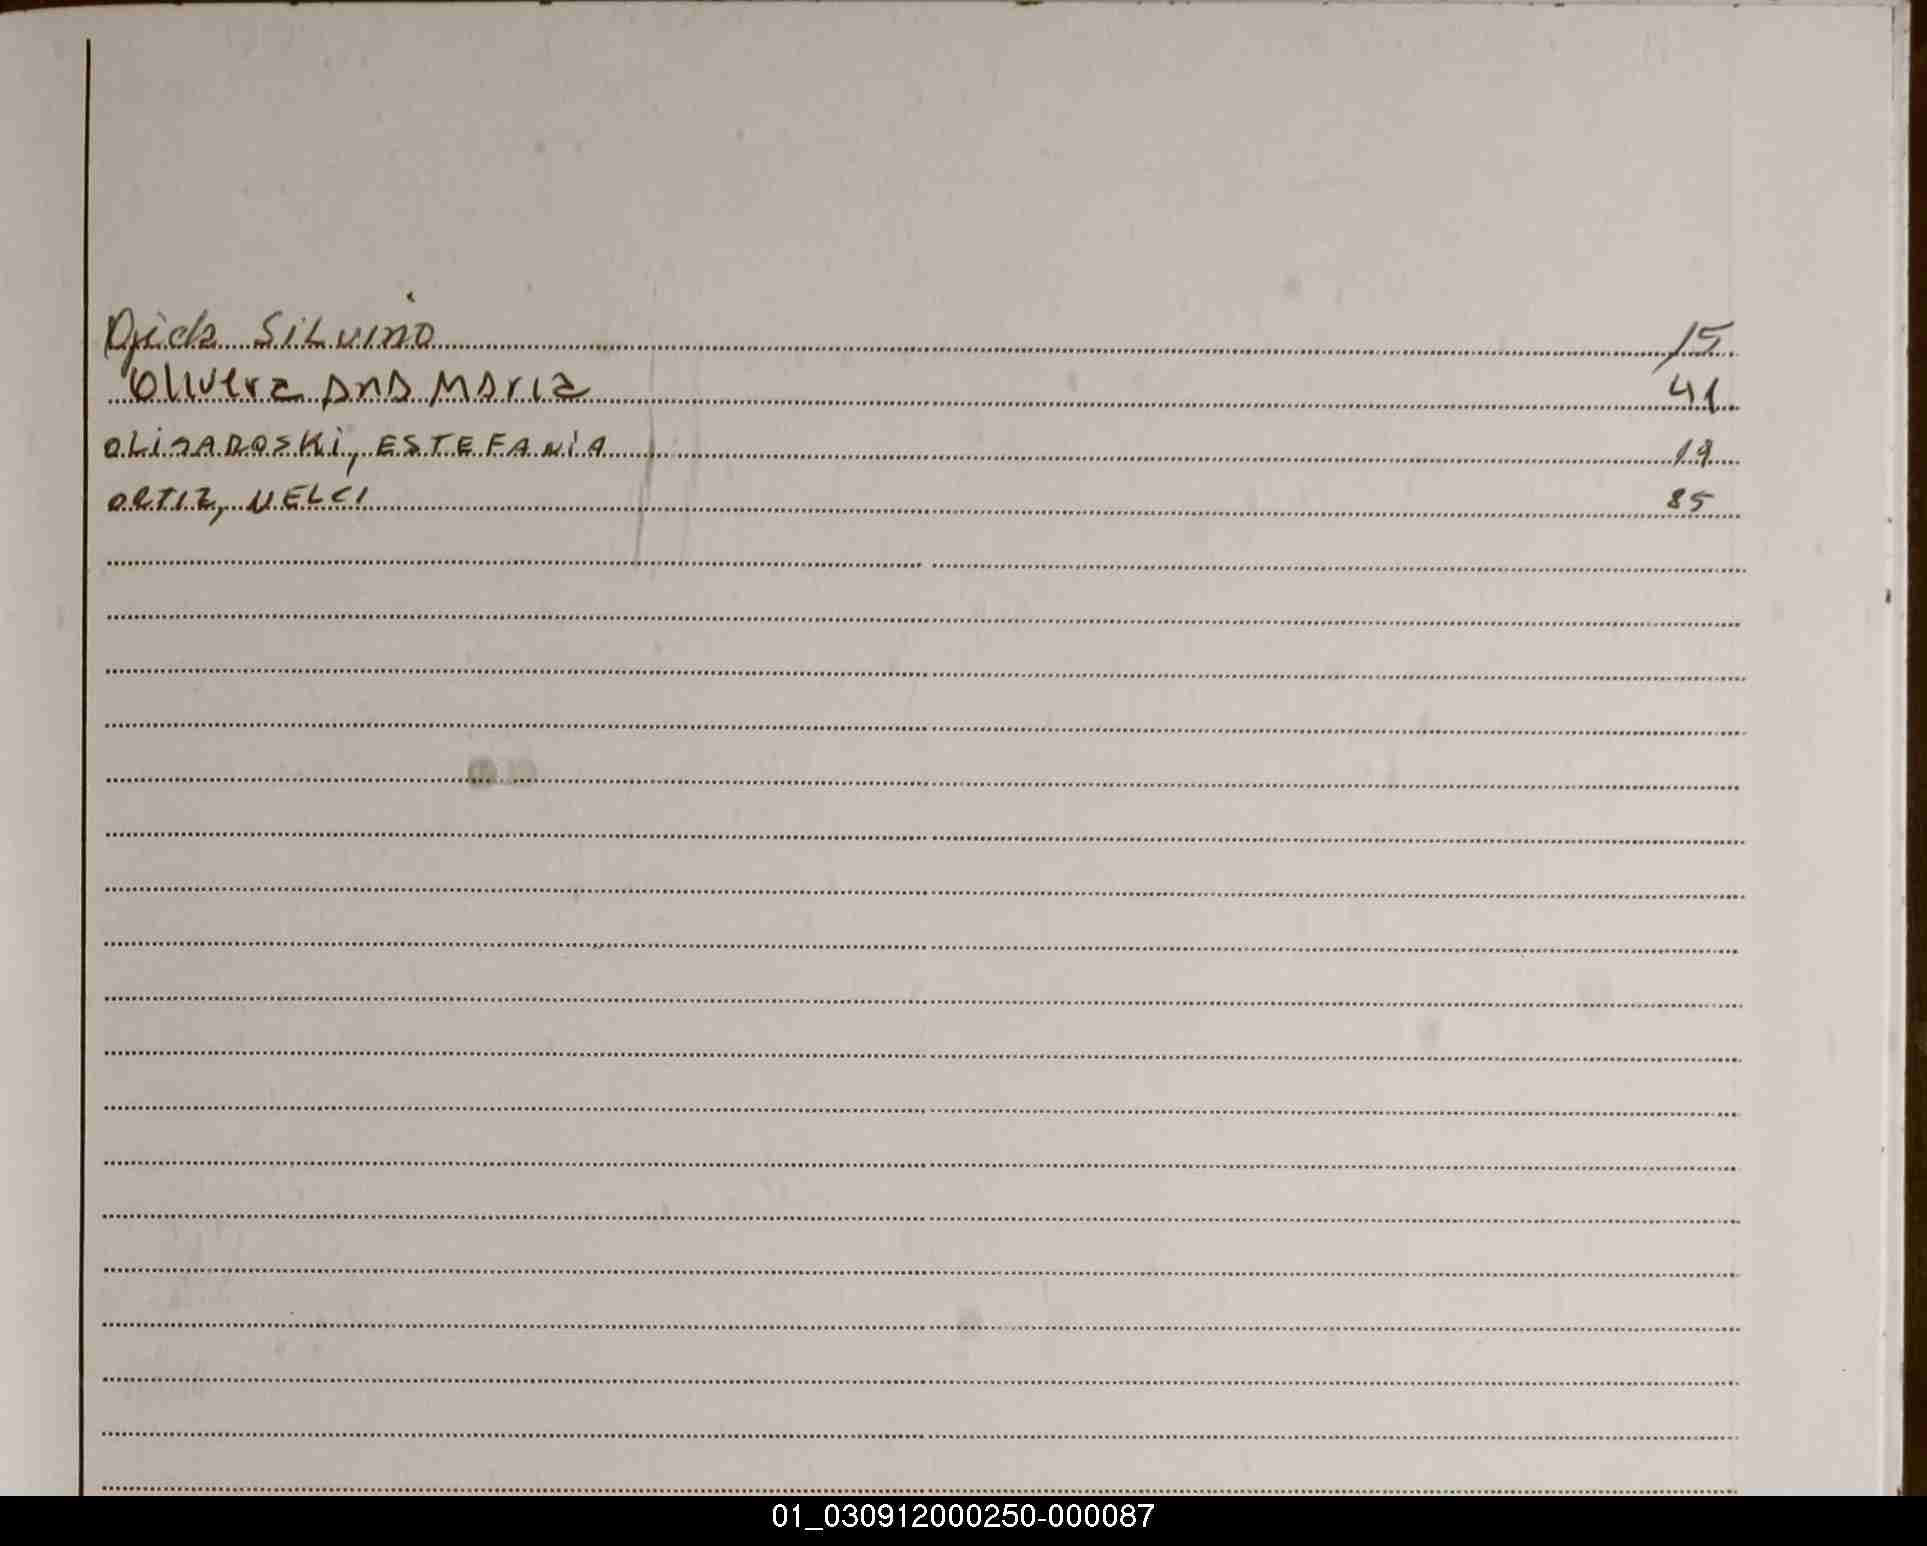 Ojeda SILVINO 15
Olivera ANA MARIA 41
OLISAROSKI, ESTEFANÍA 19
ORTIZ, NELCI 85
01_030912000250-000087